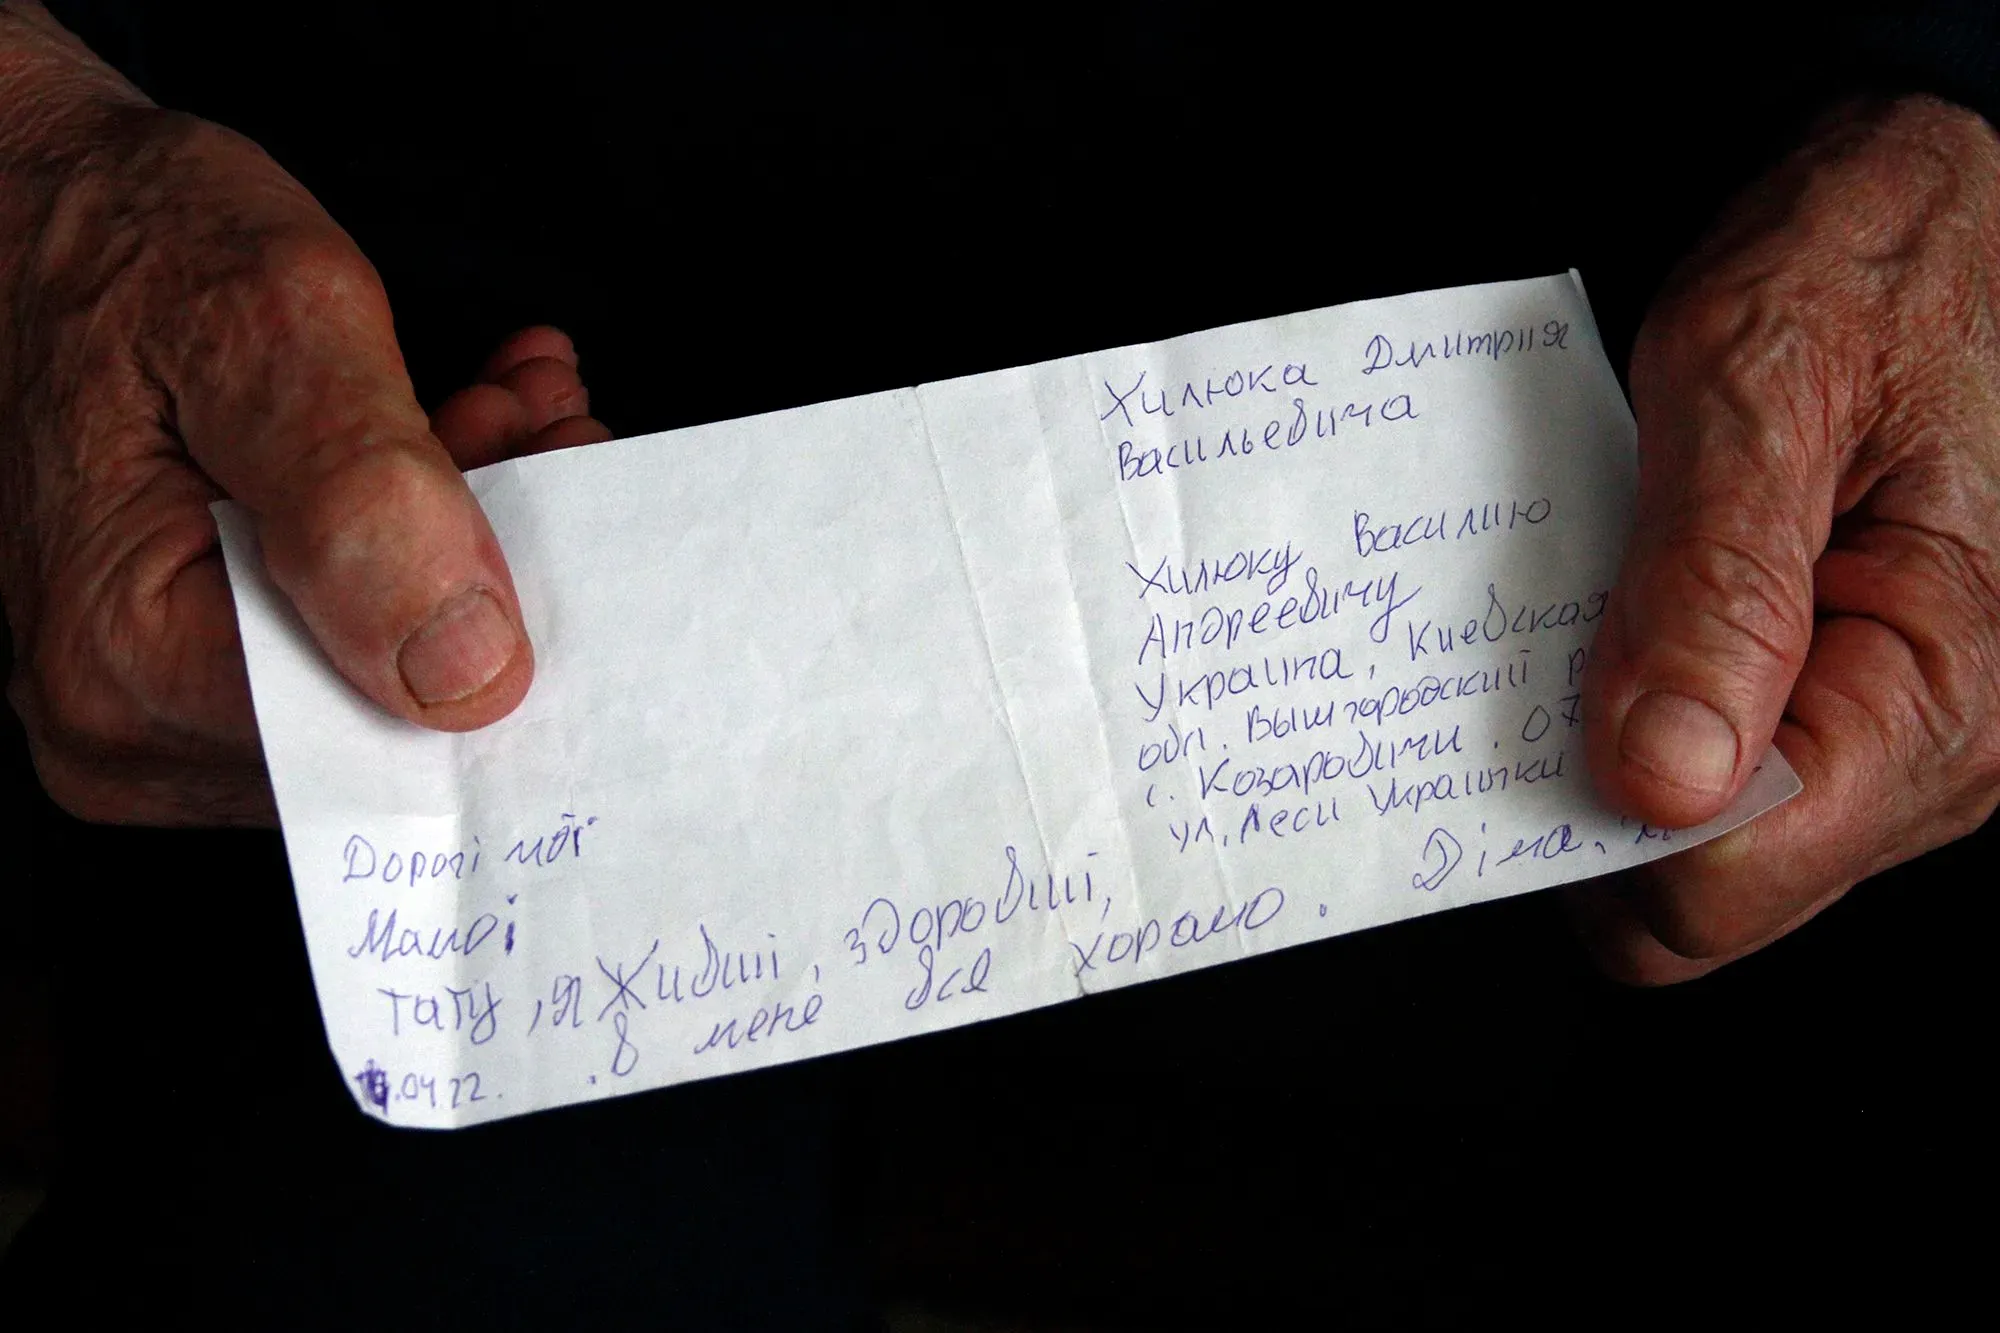 Хилюка Дмитрия
Васильевича
Хилюку Василию
Андреевичу
Украина, Киевская
обл. Вышгородский р
с. Козаровичи. 07
ул. Леси Украинки
Дорогі мої
Мамо і
тату, я Живий, здоровий,
. В мене все хорашо. Діма.
.04.22.